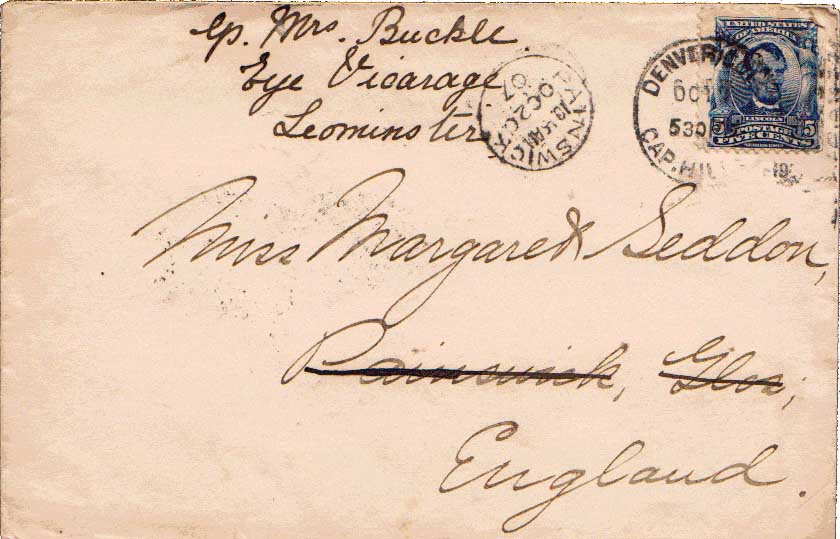 c/o. Mrs. Buckle
Eye Vicarage
Leominster
PAINSWICK
10 45 AM
OC 20
07
DENVER
OC
530
CAP. HILL
UNITED STATES
OF AMERICA
LINCOLN
5 POSTAGE 5
FIVE CENTS
Miss Margaret Seddon,
Painswick, Glos,
England.